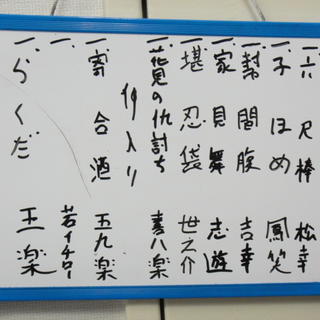 一、六尺棒 松幸
一、子ほめ 鳳笑
一、幇間腹 吉幸
一、家見舞 志遊
一、堪忍袋 世之介
一、花見の仇討ち 喜八楽
仲入り
一、寄合酒 五九楽
一、 若イチロー
一、らくだ 王楽